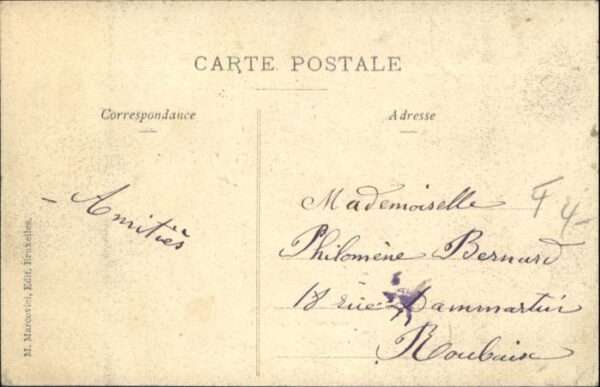 CARTE POSTALE
Correspondance
Adresse
Amitiés
Mademoiselle
Philomène Bernard
18 rue Dammartin
Roubaix
M. Marcovici, Edit. Bruxelles.